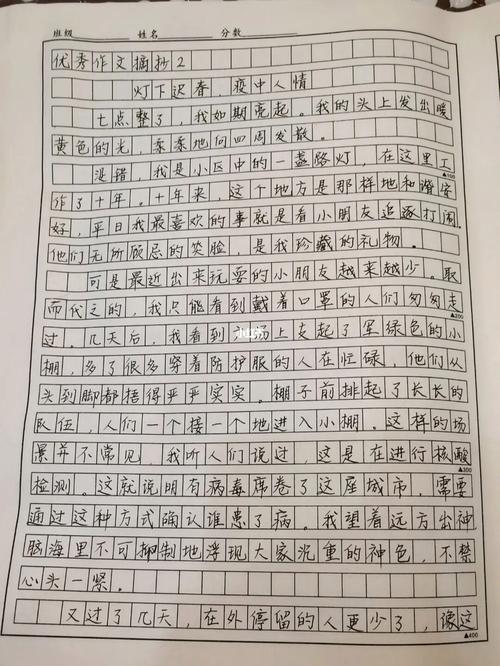 班级 姓名 分数
优秀作文摘抄2
灯下迟春，疫中人情
七点整了，我如期亮起。我的头上发出暖
黄色的光，柔柔地向四周发散。
没错，我是小区中的一盏路灯，在这里工
▲100
作了十年。十年来，这个地方是那样地和谐安
好，平日我最喜欢的事就是看小朋友追逐打闹。
他们无所顾忌的笑脸，是我珍藏的礼物。
可是最近出来玩耍的小朋友越来越少。取
而代之的，我只能看到戴着口罩的人们匆匆走
▲200
过。几天后，我看到广场上支起了军绿色的小
棚，多了很多穿着防护服的人在忙碌，他们从
头到脚都捂得严严实实。棚子前排起了长长的
队伍，人们一个接一个地进入小棚。这样的场
景并不常见，我听人们说过，这是在进行核酸
▲300
检测。这就说明有病毒席卷了这座城市，需要
通过这种方式确认谁患了病。我望着远方出神
脑海里不可抑制地浮现大家沉重的神色，不禁
心头一紧。
又过了几天，在外停留的人更少了，像这
▲400